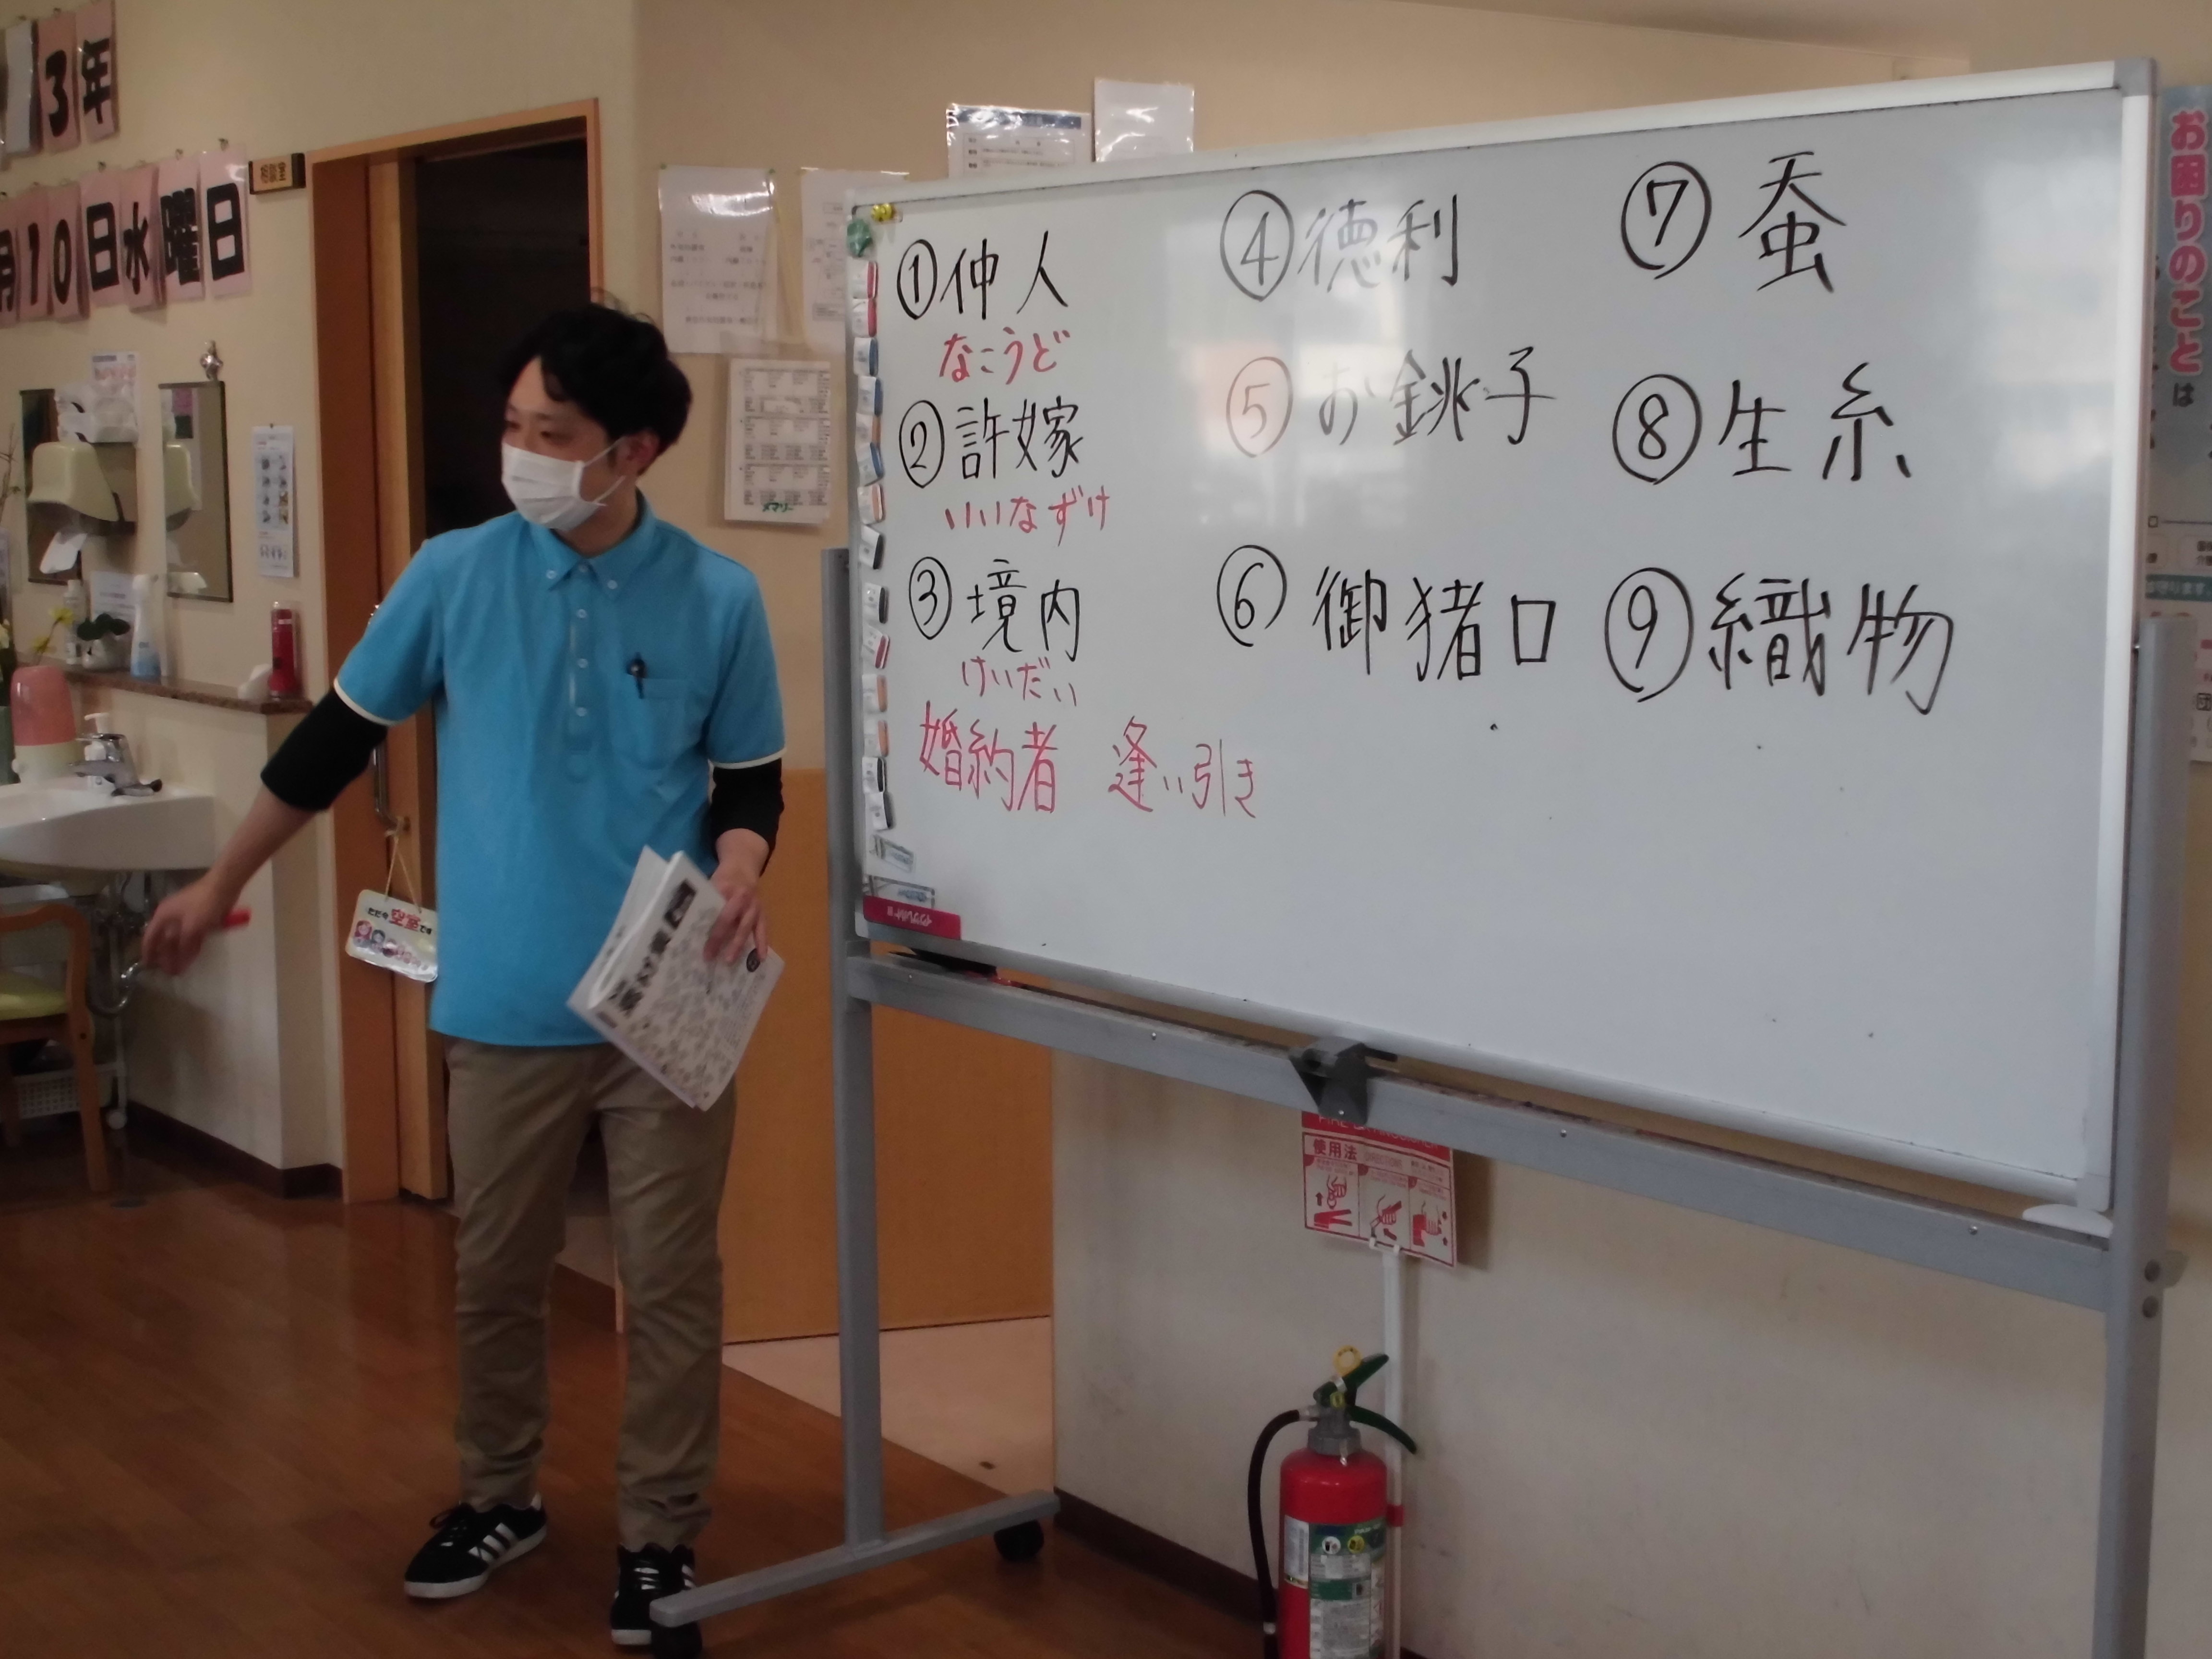 3年
月10日水曜日
相談室
①仲人
なこうど
②許嫁
いいなずけ
③境内
けいだい
婚約者 逢い引き
④徳利
⑤お銚子
⑥御猪口
⑦蚕
⑧生糸
⑨織物
お困りのことは
メマリー
ただ今空室です
使用法